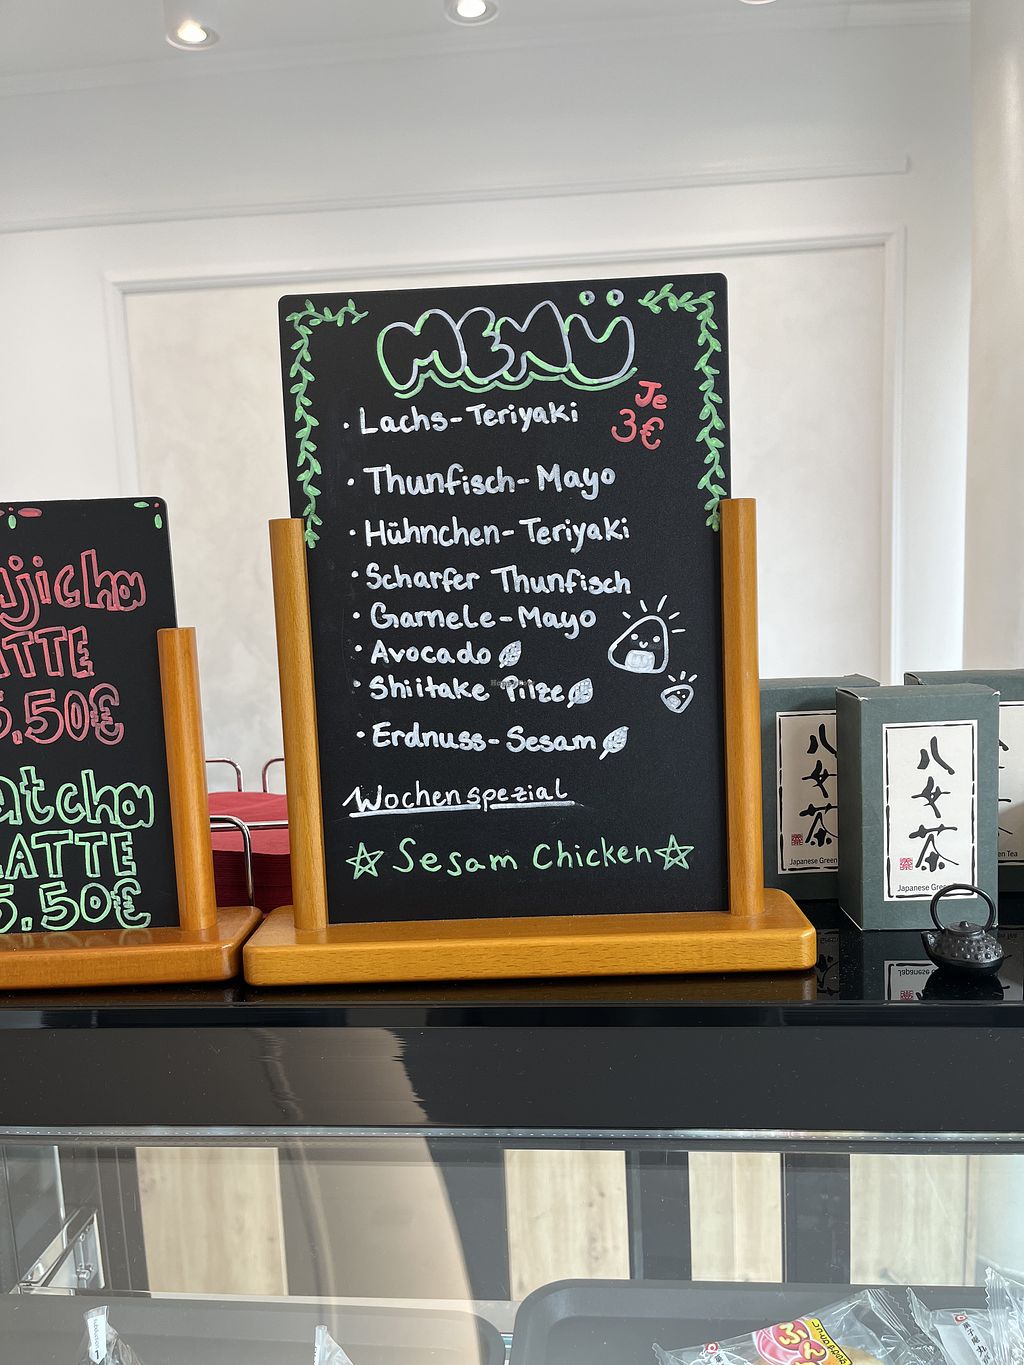 MENÜ
Je
3€
· Lachs-Teriyaki
· Thunfisch-Mayo
· Hühnchen-Teriyaki
· Scharfer Thunfisch
· Garnele-Mayo
· Avocado
· Shiitake Pilze
· Erdnuss-Sesam
Wochenspezial
☆ Sesam Chicken ☆
jicha
ATTE
5.50€
atcha
LATTE
5.50€
八女茶
Japanese Green
八女茶
Japanese Gree
n Tea